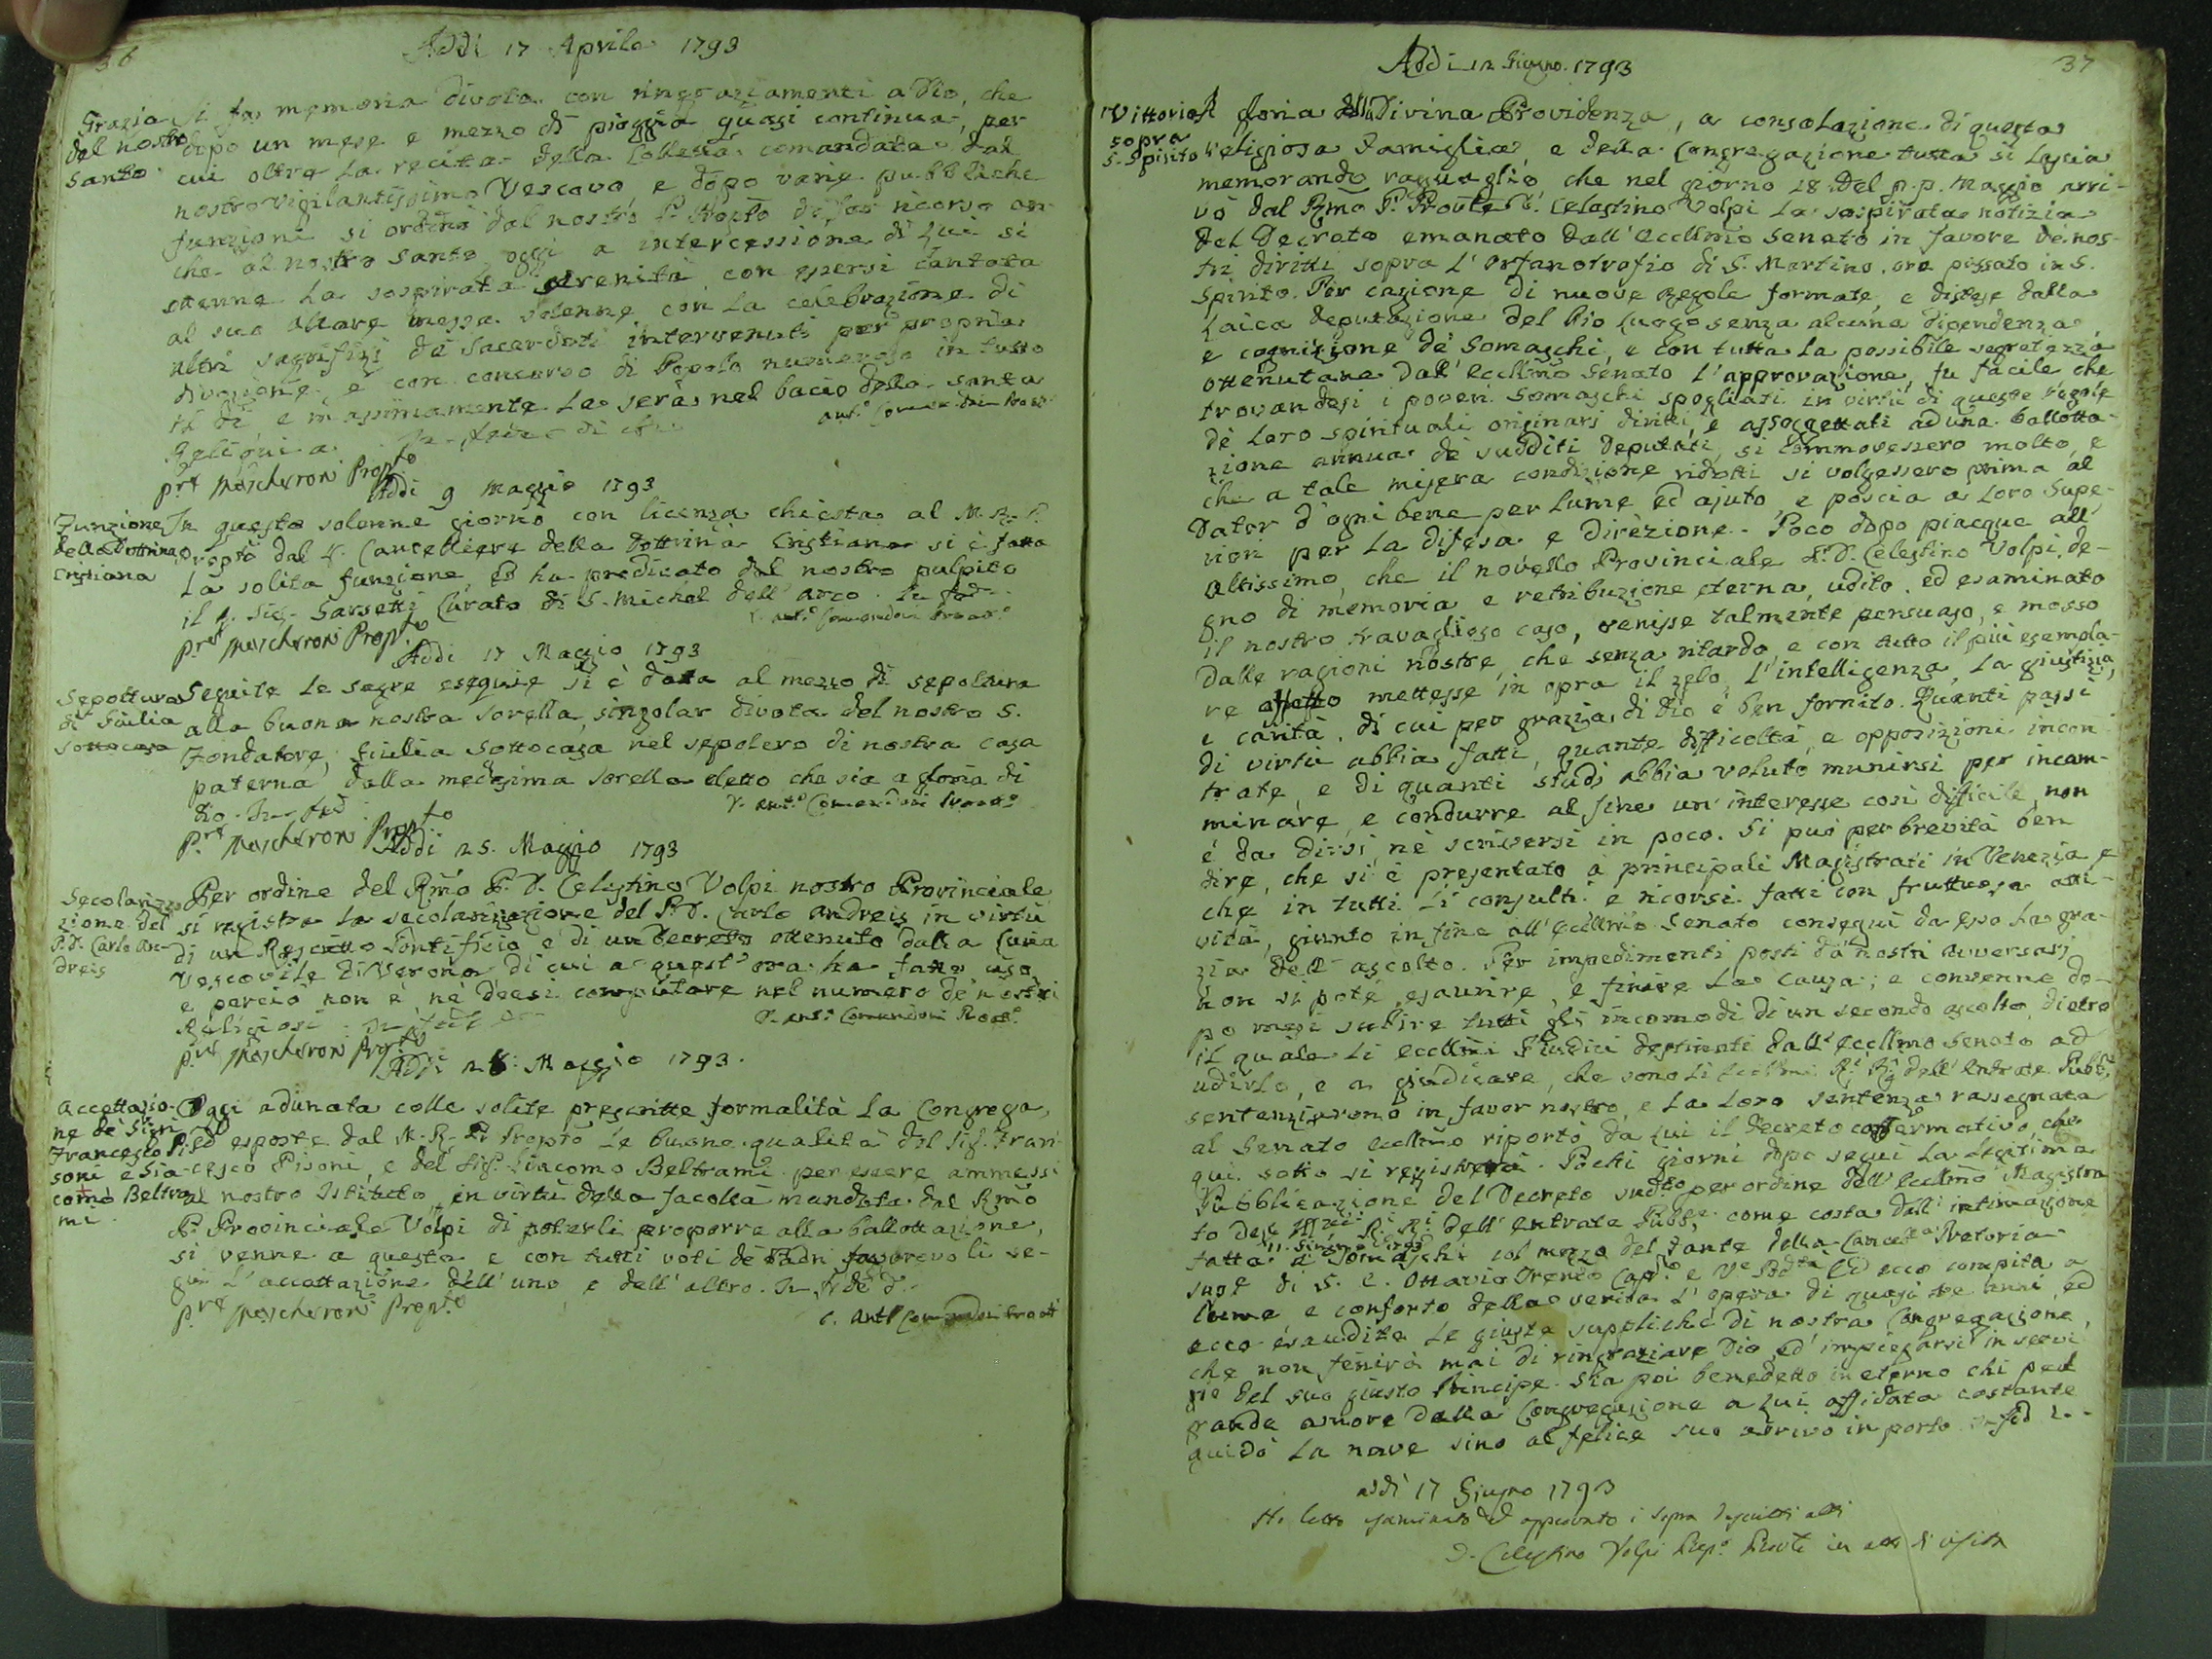 36
Addi 17 Aprile 1793
Grazia
del nostro
Santo
Si fa memoria divota con ringraziamenti a Dio, che
dopo un mese e mezzo di pioggia quasi continua, per
cui oltre la recita della Colletta comandata dal
nostro vigilantissimo Vescovo, e dopo varie pubbliche
funzioni si ordinò dal nostro P. Prop.to di far ricorso an-
che al nostro Santo, oggi a intercessione di Lui si
ottenne la sospirata serenità con essersi cantata
al suo altare messa solenne con la celebrazione di
altri sagrifizj de' Sacerdoti intervenuti per propria
divozione, e con concorso di Popolo numeroso in tutto
il dì, e massimamente la sera nel bacio della santa
Reliquia. In fede di che
P.re Moscheroni Prop.to
Addi 9 Maggio 1793
Funzione
della Dottrina
Cristiana
In questo solenne giorno con licenza chiesta al M. R. P.
Propto dal S. Cancelliere della Dottrina Cristiana si è fatta
la solita funzione, ed ha predicato dal nostro pulpito
il Sig. Sarsetti Curato di S. Michel dell'arco. In fed
P.re Moscheroni Prop.to
Addi 17 Maggio 1793
Sepoltura
di Giulia
Sottocasa
Seguite le sagre esequie si è data al mezzo di sepoltura
alla buona nostra sorella, singolar divota del nostro S.
Fondatore, Giulia Sottocasa nel sepolcro di nostra casa
paterna dalla medesima sorella eletto che sia a gloria di
Dio. In fed
P.re Moscheroni Prop.to
Addi 25. Maggio 1793
Secolariz-
zione del
P. D. Carlo An-
dreis
Per ordine del Rmo P. D. Celestino Volpi nostro Provinciale
si registra la secolarizzazione del P. D. Carlo Andreis in virtù
di un Rescritto Pontificio e di un Decreto ottenuto dalla Curia
Vescovile di Verona di cui a quest'ora ha fatto uso,
e perciò non è, nè deesi computare nel numero de' nostri
Religiosi. In fed
P.re Moscheroni Prop.to
Addi 28. Maggio 1793.
Accettazio-
ne de' Sign
Francesco Pi-
soni e Gia-
como Beltra-
mi.
Oggi adunata colle solite prescritte formalità la Congrega,
ed esposte dal M. R. P. Propto le buone qualità del Sig. Fran-
cesco Pisoni, e del Sig. Giacomo Beltrami per essere ammessi
al nostro Istituto, in virtù della facoltà mandata dal Rmo
P. Provinciale Volpi di poterli proporre alla ballottazione,
si venne a questa e con tutti voti de' Padri favorevoli se-
guì l'accettazione dell'uno e dell'altro. In fede
P.re Moscheroni Prop.to
37
Addi 12 Giugno. 1793
Vittoria
sopra
S. Spirito
A gloria della Divina Providenza, a consolazione di questa
religiosa Famiglia, e della Congregazione tutta si lascia
memorando ragguaglio, che nel giorno 28 del p. p. Maggio arri-
vò dal Rmo P. Provle D. Celestino Volpi la sospirata notizia
del Decreto emanato dall'Eccllmo Senato in favore de' nos-
tri diritti sopra l'Orfanotrofio di S. Martino, ora passato in S.
Spirito. Per cagione di nuove Regole formate, e distese dalla
Laica deputazione del Pio Luogo senza alcuna dipendenza,
e cognizione de' Somaschi, e con tutta la possibile segretezza
ottenutane dall'Eccllmo Senato l'approvazione, fu facile che
trovandosi i poveri Somaschi spogliati in virtù di queste regole
de' loro spirituali originarj diritti, e assoggettati ad una ballotta-
zione annua de' sudditi Deputati, si commovessero molto, e
che a tale misera condizione ridotti si volgessero prima al
Dator d'ogni bene per lume ed ajuto, e poscia a loro Supe-
riori per la difesa e direzione. Poco dopo piacque all'
Altissimo, che il novello Provinciale P. D. Celestino Volpi, de-
gno di memoria e retribuzione eterna, udito, ed esaminato
il nostro travaglioso caso, venisse talmente persuaso, e mosso
dalle ragioni nostre, che senza ritardo e con tutto il più esempla-
re affetto mettesse in opra il zelo, l'intelligenza, la giustizia,
e carità, di cui per grazia di Dio è ben fornito. Quanti passi
di virtù abbia fatti, quante difficoltà, e opposizioni incon-
trate, e di quanti studj abbia voluto munirsi per incam-
minare, e condurre al fine un'interesse così difficile, non
è da dirsi, nè scriversi in poco. Si può per brevità ben
dire, che si è presentato a principali Magistrati in Venezia, e
che in tutti li consulti e ricorsi fatti con fruttuosa atti-
vità, giunto in fine all'Eccllmo Senato conseguì da esso la gra-
zia dell'ascolto. Per impedimenti posti da' nostri avversarj
non si potè esaurire, e finire la causa; e convenne do-
po mesi subire tutti gli incomodi di un secondo ascolto, dietro
il quale li Eccllmi Giudici destinati dall'Eccllmo Senato ad
udirlo, e a giudicare, che sono li Eccllmi Ri. Ri. dell'Entrate Pubb.e
sentenziarono in favor nostro, e la loro sentenza rassegnata
al Senato Eccllmo riportò da Lui il Decreto confermativo, che
qui sotto si registrerà. Pochi giorni dopo seguì la legitima
Pubblicazione del Decreto sud.to per ordine dell'Eccllmo Magistra-
to de' Ri. Ri. dell'Entrate Pubb.e come costa dall'intimazione
11. Giugno 1793
fatta a' Somaschi col mezzo del Fante della Cancel.ia Pretoria
di S. E. Ottavio Trento Cap.o e V.e Pod.tà Ed ecco compita a
lume e conforto della verità l'opera di quasi tre anni, ed
ecco esaudite le giuste suppliche di nostra Congregazione,
che non finirà mai di ringraziare Dio, ed impiegarsi in servi-
gio del suo giusto Principe. Sia poi benedetto in eterno chi pel
grande amore della Congregazione a Lui affidata costante
guidò la nave sino al felice suo arrivo in porto. In fed
addì 17 Giugno 1793
Ho letto esaminato ed approvato i sopra descritti atti
D. Celestino Volpi Prep.o Prov.le in atto di visita